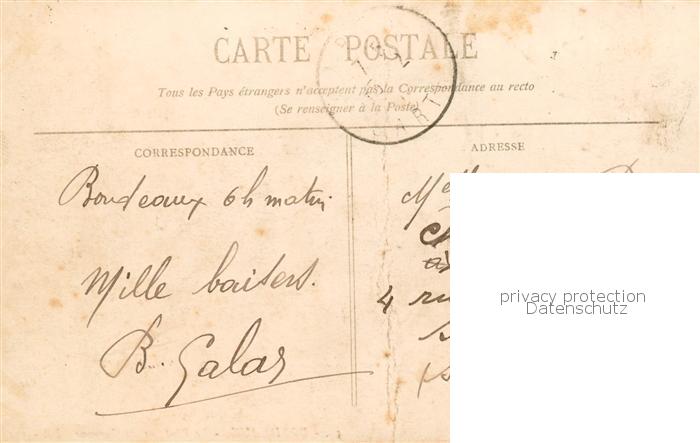 CARTE POSTALE
Tous les Pays étrangers n'acceptent pas la Correspondance au recto
(Se renseigner à la Poste)
CORRESPONDANCE
Bordeaux 6h matin
Mille baisers.
B. Galas
ADRESSE
4
privacy protection
Datenschutz